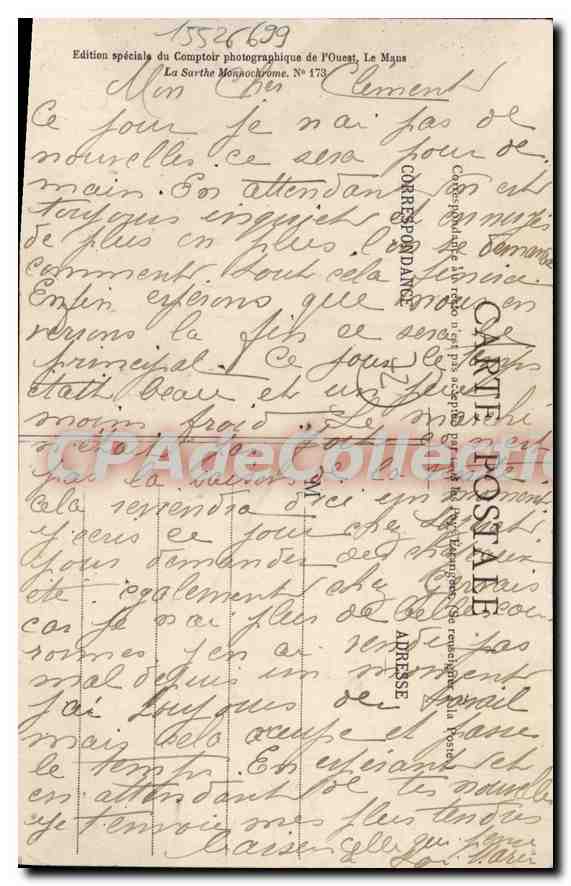 15526699
Edition spéciale du Comptoir photographique de l'Ouest, Le Mans
La Sarthe Monnochrome. N° 173
Mon Cher Clément
Ce jour je n'ai pas de
nouvelles ce sera pour de
main. En attendant on est
toujours inquiet et ennuyés
de plus en plus l'on se demande
comment tout cela finira.
Enfin espérons que nous en
verrons la fin ce sera le
principal. Ce jour le temps
était beau et un peu
moins froid. Le marché
n'était pas fort ce n'est
pas la saison de la
cela reviendra d'ici un moment
j'écris ce jour chez
pour demander des chapeaux
été également chez Gervais
car je n'ai plus de belles cou
ronnes j'en ai vendu pas
mal depuis un moment
j'ai toujours du travail
mais cela occupe et passe
le temps. En espérant et
en attendant de tes nouvelles
je t'envoie mes plus tendres
baisers celle qui
Marie
CARTE POSTALE
Correspondance au recto n'est pas acceptée par tous les Pays Etrangers. (Se renseigner à la Poste)
CORRESPONDANCE
ADRESSE
M
24
CPAdeCollection